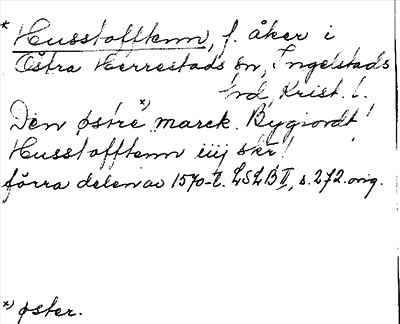 * Husstofftenn, f. åker i
Östra Herrestads sn, Ingelstads
hd, Krist. l.
Den østre *) marck. Bygiordt!
Husstofftenn iiij skr!
förra delen av 1570-t. LSLB II, s. 272. orig.
*) øster.